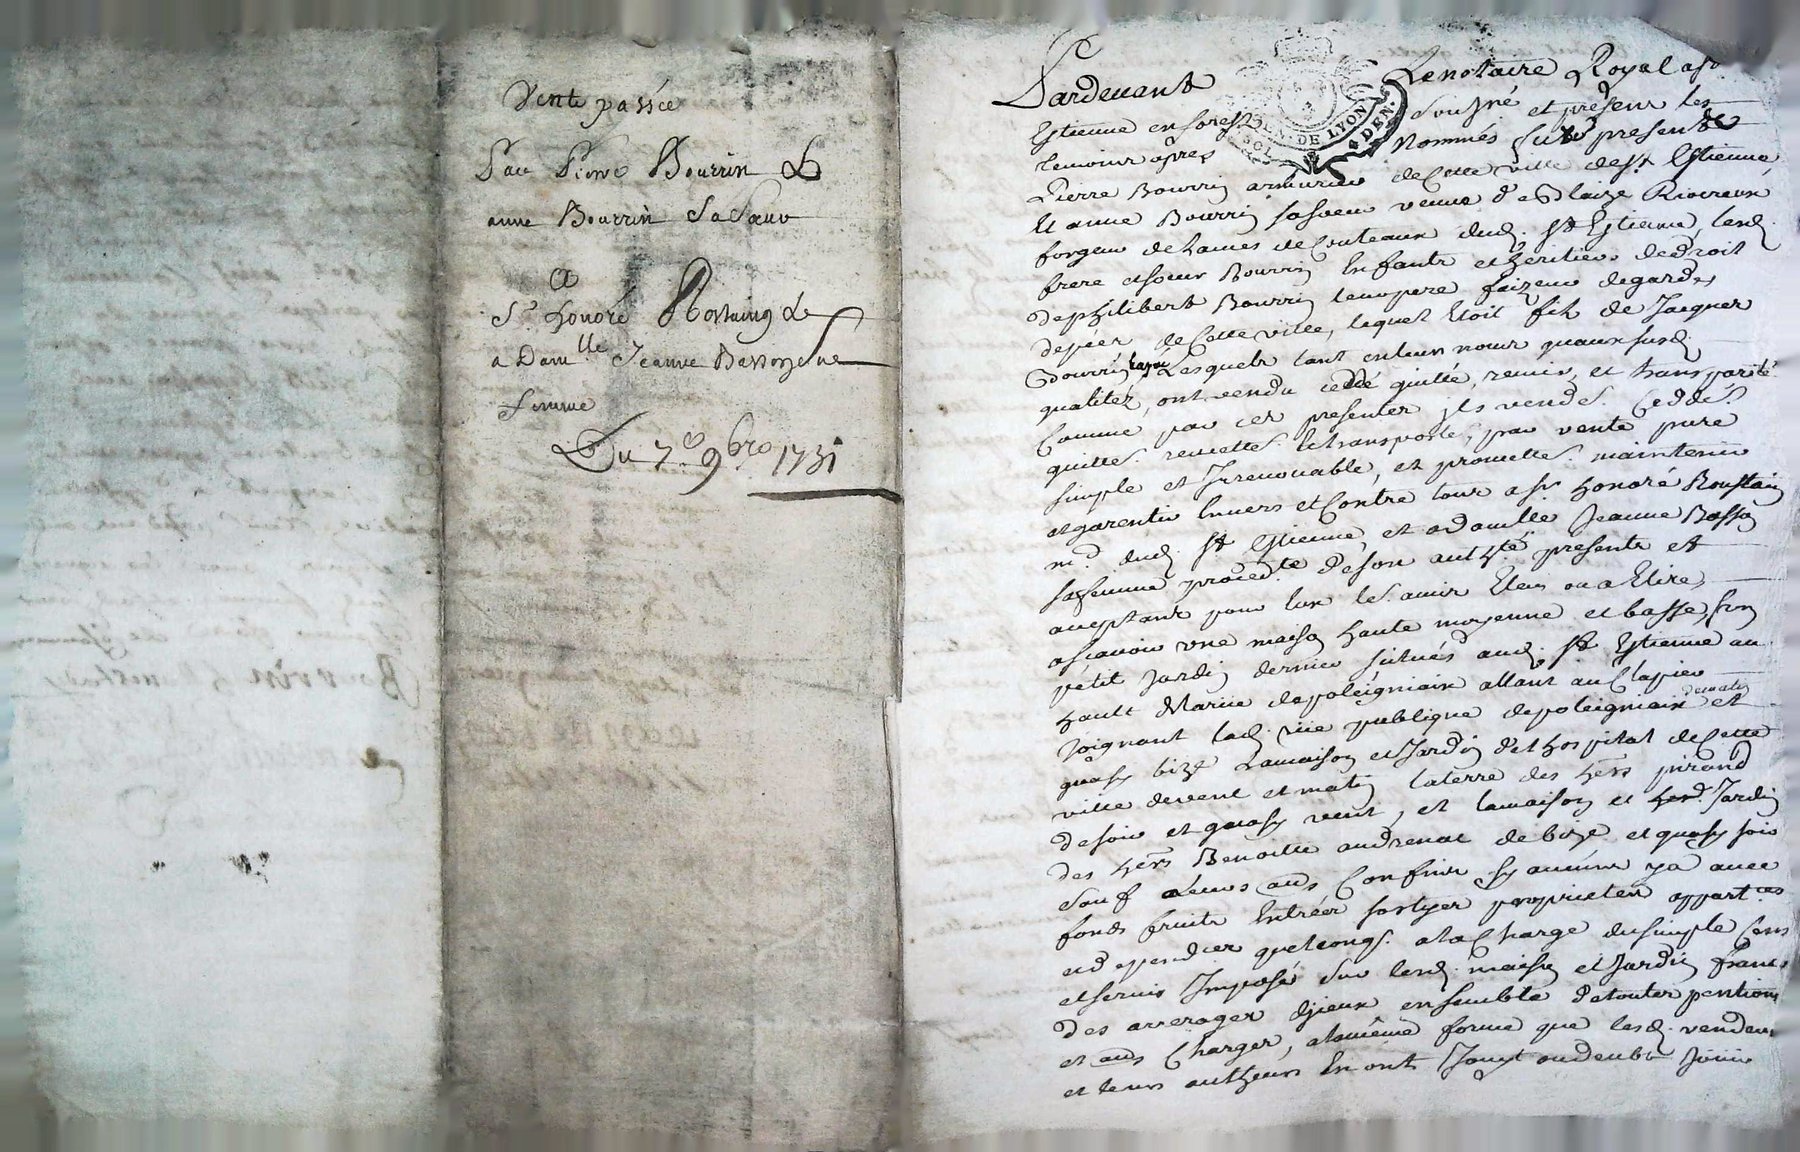 Vente passée
Par Pierre Bourrin &
anne Bourrin Sa Sœur
a
Sr. honoré Rostaing &
a Dam.lle Jeanne Basson sa
femme
Du 7e 9bre 1731
Pardevant Le notaire Royal a St
Estienne en forest Soussigné et present les
temoins apres Nommés furent presents
Pierre Bourrin armurier de Cette ville de St Estienne
Et anne Bourrin sa soeur veuve de Blaize
forgeur de lames de Couteaux dud. St Estienne, lesd.
frere et soeur Bourrin Enfants et heritiers de droit
de philibert Bourrin leur pere faizeur de gardes
d'epées de Cette ville, lequel Etoit fils de Jacques
Bourrin Lesquels tant en leurs noms quaux susd.
qualités, ont vendu ceddé quitté, remis, et transporté
Comme par ces presentes ils vendet Ceddet
quittet remettet Et transportet, par vente pure
simple et Irrevocable, et promettet maintenir
et garentir Envers et Contre tous a Sr. honoré Roustain
md. dud. St Estienne, et a damlle Jeanne Basson
sa femme proced.te de son auth.té presents et
acceptant pour Eux les amis Eleus ou a Elire,
a sçavoir une maison haute moyenne et basse, son
petit Jardin derrier situés aud. St Estienne au
hault de la rue de poleigniaix allant au Clapier
Joignant lad. rüe publique de poleigniaix de matin et
quasy bize La maison et Jardin de Lhospital de Cette
ville de vent et matin la terre des hers pirand
de soir et quasy vent, et la maison et Jardin
des hers Benoitte audrenat de bize et quasy soir
Sauf leurs aus Confins sy aucuns ya avec
fonds fruits Entrées sortyes proprietés appart.ces
et dependces quelcongs. a la Charge du simple Cens
et servis Imposé sur lesd. maison et Jardin francs
des arrerages d'jceux ensemble de toutes pentions
et aus Charges, a la même forme que lesd. vendeurs
et leurs autheurs En ont Jouyt ou deubt Joüir